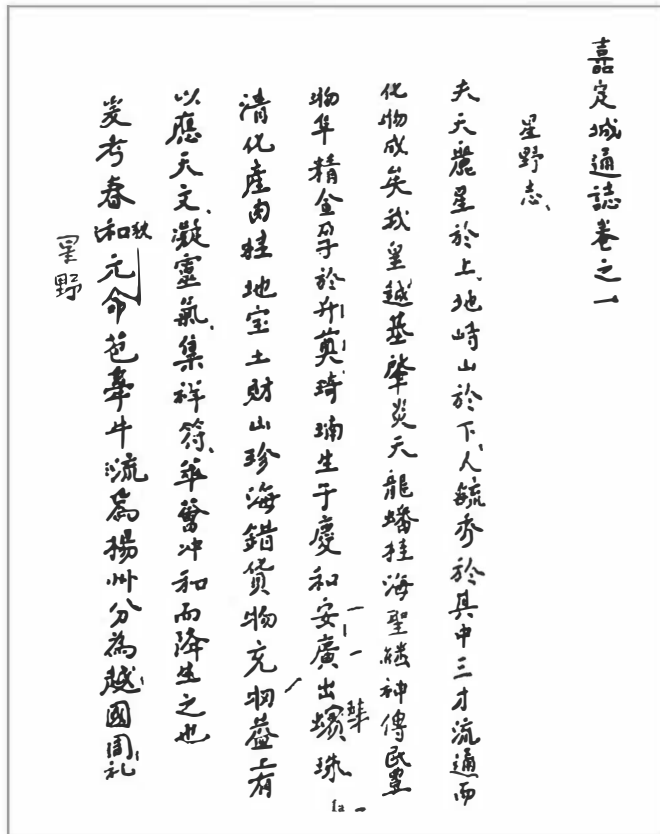 嘉定城通誌卷之一
星野志
夫天麗星於上地峙山於下人毓秀於其中三才流通而
化物成矣我皇越基肇炎天龍蟠桂海聖繼神傳民豊
物阜精金孕於升奠琦瑞生于慶和安廣出蠙珠
清化產肉桂地宝土財山珍海錯貨物充牣蓋上有
以應天文凝靈氣集祥符萃畨冲和而降生之也
爰考春秋元命苞牽牛流為揚州分為越國周礼
星野